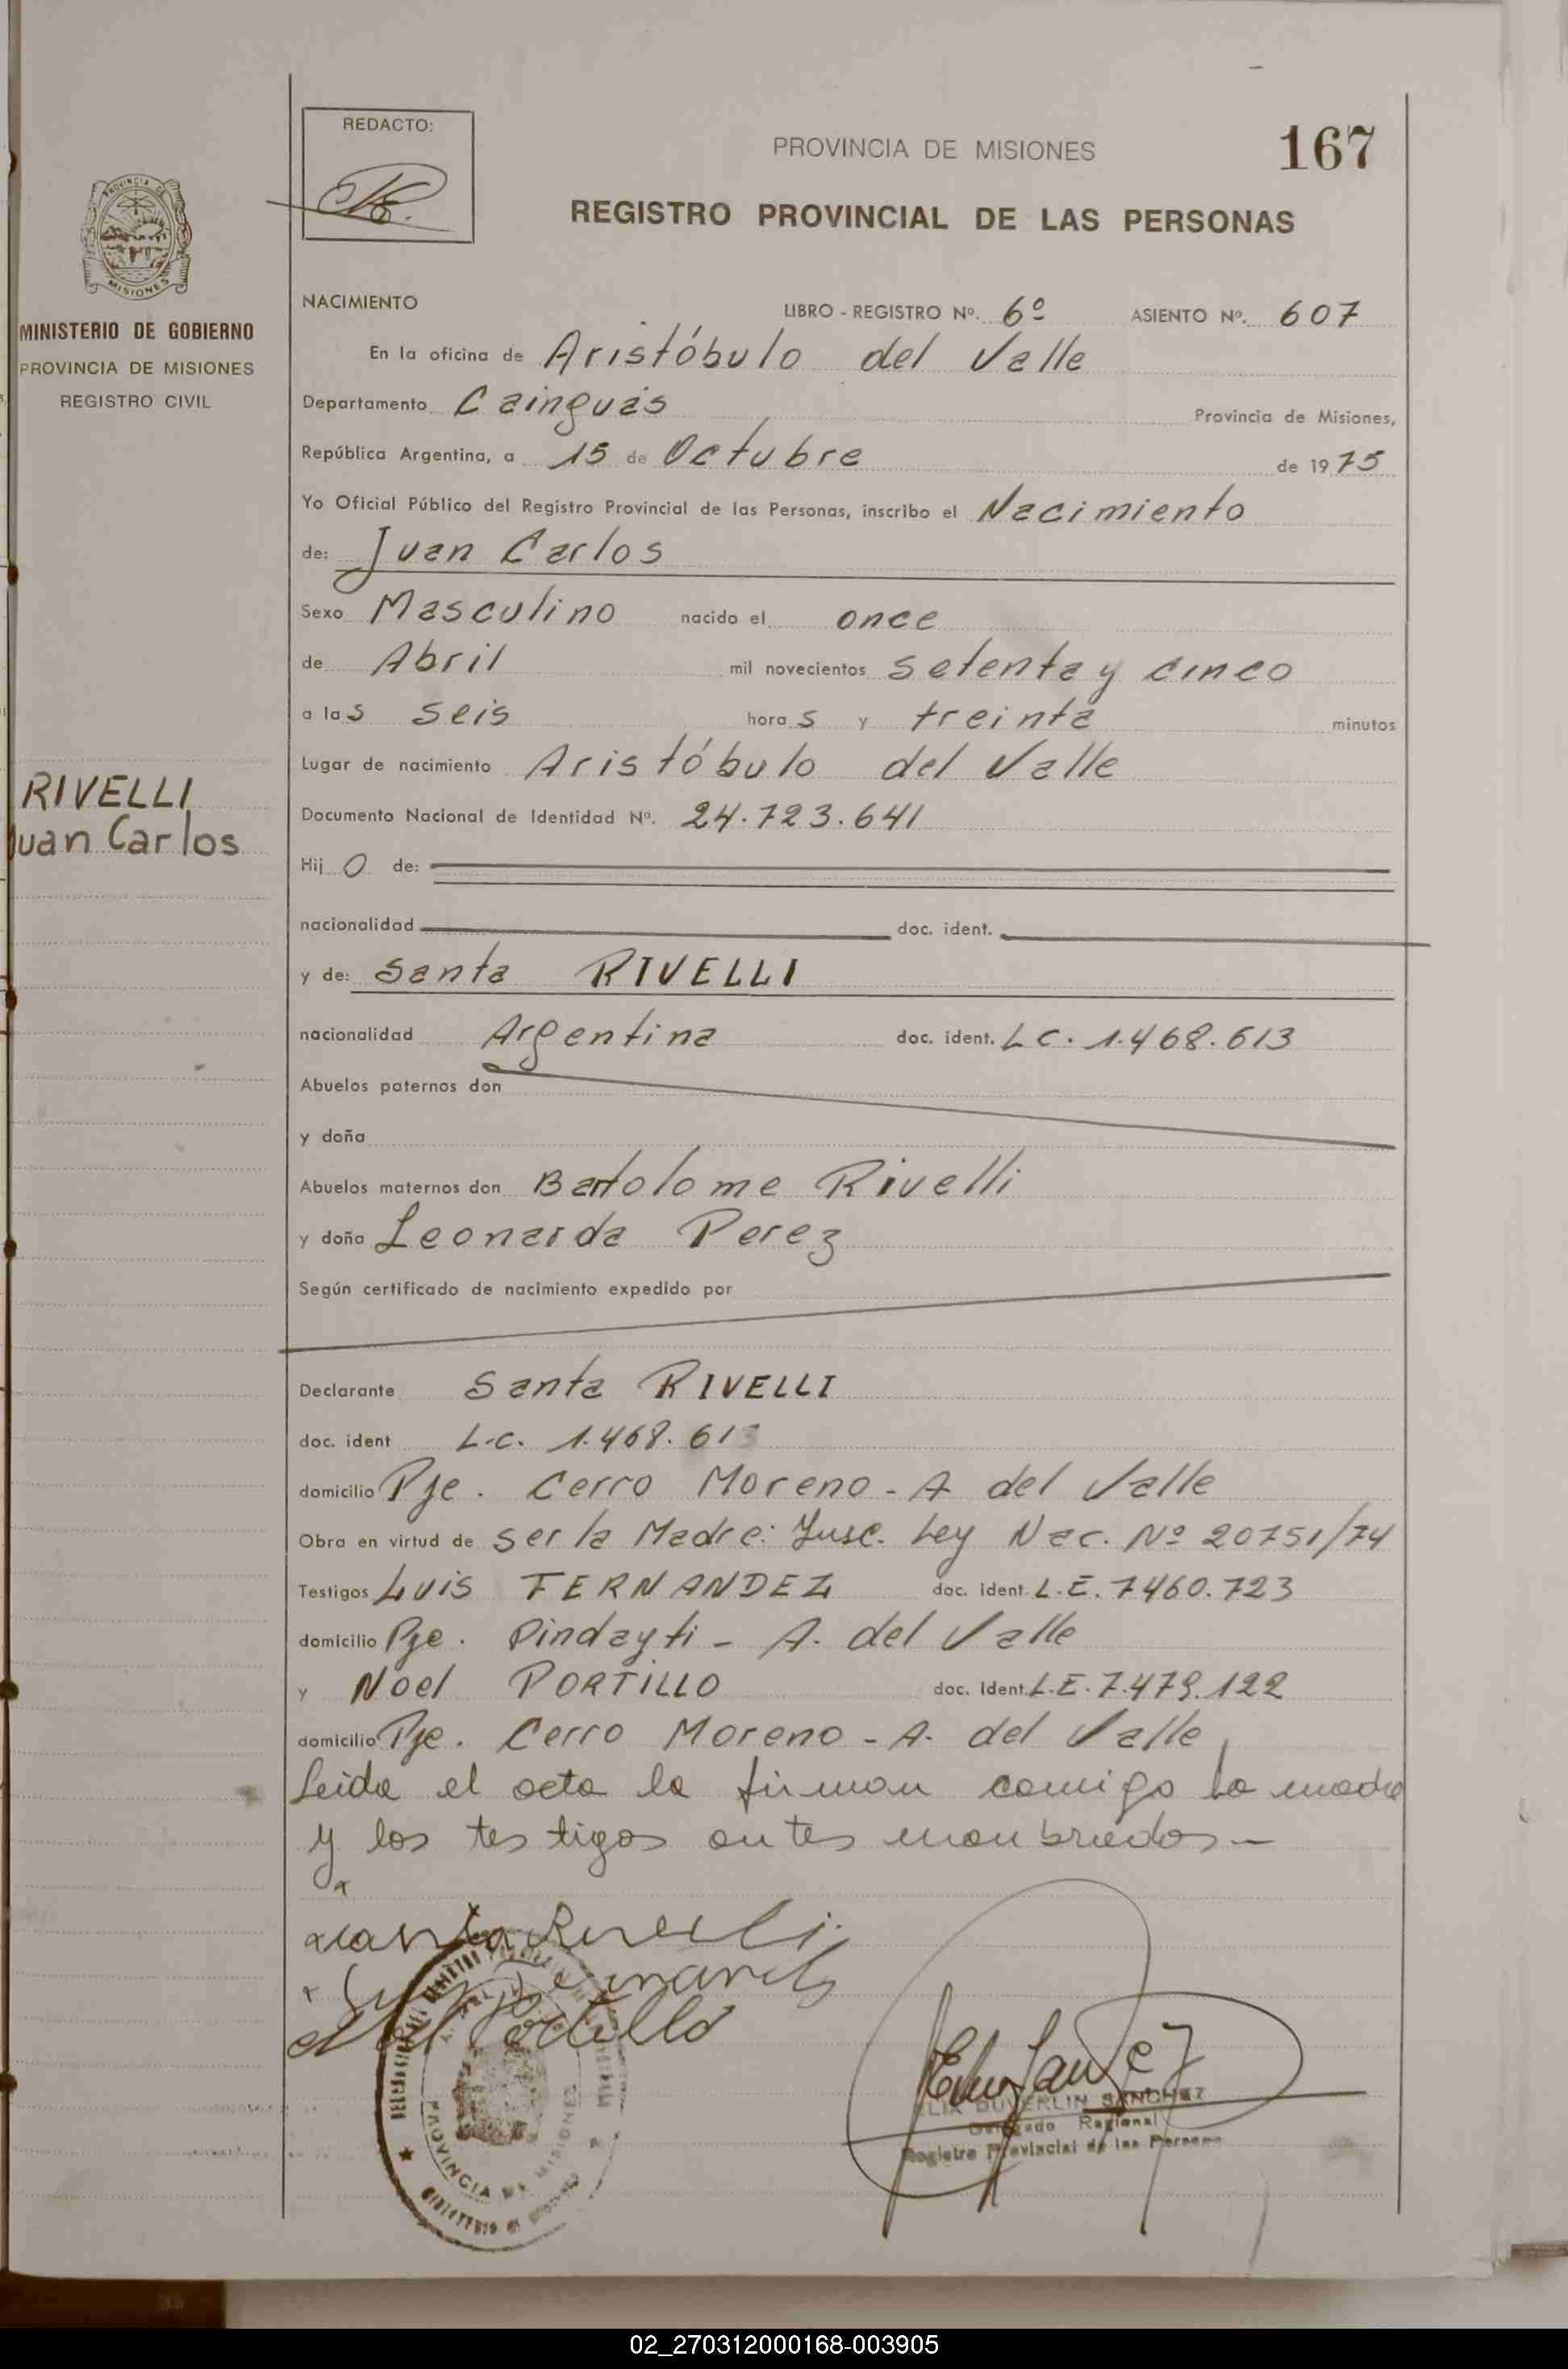 REDACTO:
PROVINCIA DE MISIONES
167
REGISTRO PROVINCIAL DE LAS PERSONAS
PROVINCIA DE
MISIONES
MINISTERIO DE GOBIERNO
PROVINCIA DE MISIONES
REGISTRO CIVIL
RIVELLI
Juan Carlos
NACIMIENTO LIBRO - REGISTRO Nº. 6º ASIENTO Nº. 607
En la oficina de Aristóbulo del Valle
Departamento Cainguás Provincia de Misiones,
República Argentina, a 15 de Octubre de 1975
Yo Oficial Público del Registro Provincial de las Personas, inscribo el Nacimiento
de: Juan Carlos
Sexo Masculino nacido el once
de Abril mil novecientos setenta y cinco
a las seis horas y treinta minutos
Lugar de nacimiento Aristóbulo del Valle
Documento Nacional de Identidad Nº. 24.723.641
Hijo de:
nacionalidad doc. ident.
y de: Santa RIVELLI
nacionalidad Argentina doc. ident. L C. 1.468.613
Abuelos paternos don
y doña
Abuelos maternos don Bartolome Rivelli
y doña Leonarda Perez
Según certificado de nacimiento expedido por
Declarante Santa RIVELLI
doc. ident L.C. 1.468.613
domicilio Pje. Cerro Moreno - A del Valle
Obra en virtud de ser la Madre: Insc. Ley Nac. Nº 20751/74
Testigos Luis FERNANDEZ doc. ident. L.E. 7460.723
domicilio Pje. Pindayti - A. del Valle
y Noel PORTILLO doc. Ident. L.E. 7.479.122
domicilio Pje. Cerro Moreno - A. del Valle
Leida el acta la firman comigo la madre
y los testigos antes monbrados -
Santa Rivelli
Portillo
FELIX DUVERLIN SANCHEZ
Delegado Regional
Registro Provincial de las Personas
PROVINCIA DE MISIONES
02_270312000168-003905